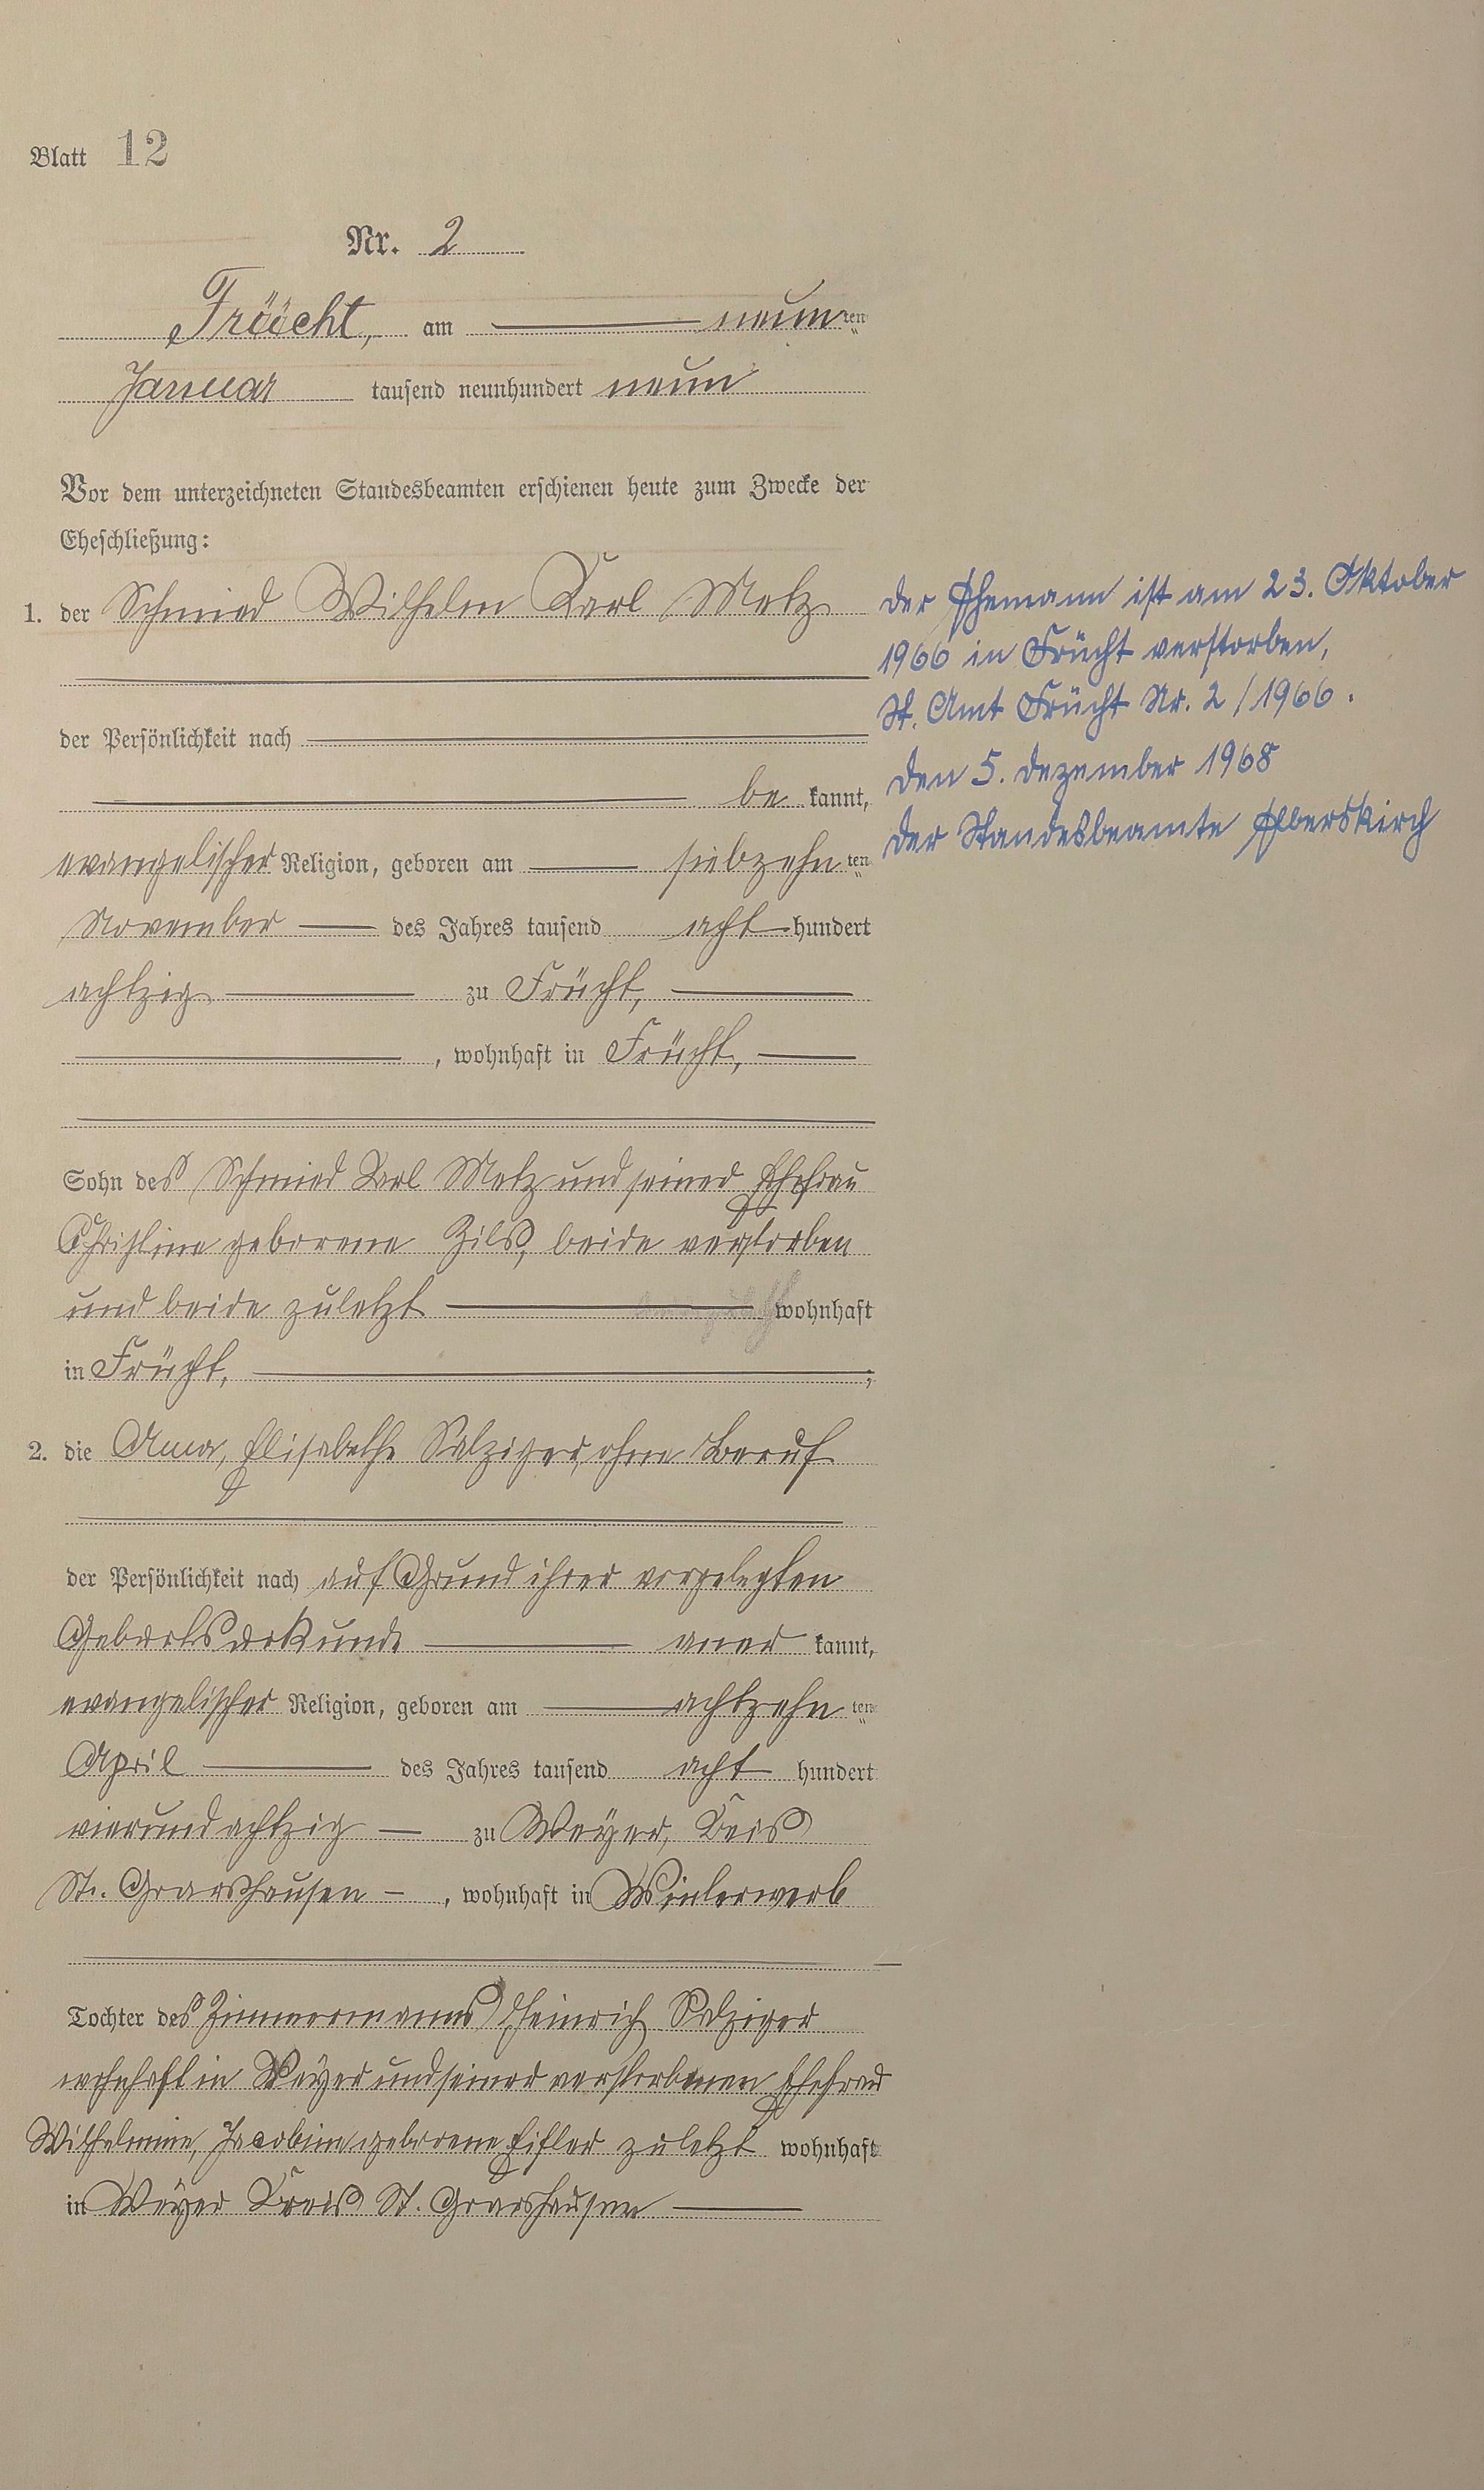 Blatt 12
Nr. 2
Früecht, am neunten
Januar tausend neunhundert neun
Vor dem unterzeichneten Standesbeamten erschienen heute zum Zwecke der
Eheschließung:
1. der Schmied Wilhelm Karl Metz
der Persönlichkeit nach
be kannt,
evangelischer Religion, geboren am siebzehn ten
November des Jahres tausend acht hundert
achtzig zu Frücht,
, wohnhaft in Frücht,
Sohn des Schmied Karl Metz und seiner Ehefrau
Christine geborene Zils, beide verstorben
und beide zuletzt wohnhaft
in Frücht, ;
2. die Anna, Elisabethe Salziger, ohne Beruf
der Persönlichkeit nach auf Grund ihrer vorgelegten
Geburtsurkunde aner kannt,
evangelischer Religion, geboren am achtzehn ten
April des Jahres tausend acht hundert
vierundachtzig zu Weyer, Kreis
St. Goarshausen , wohnhaft in Winterwerb
Tochter des Zimmermanns Heinrich Salziger
wohnhaft in Weyer und seiner verstorbenen Ehefrau
Wilhelmine, Jacobine geborene Eifler zuletzt wohnhaft
in Weyer Kreis St. Goarshausen
Der Ehemann ist am 23. Oktober
1966 in Frücht verstorben,
St. Amt Frücht Nr. 2/1966.
Den 5. Dezember 1968
Der Standesbeamte